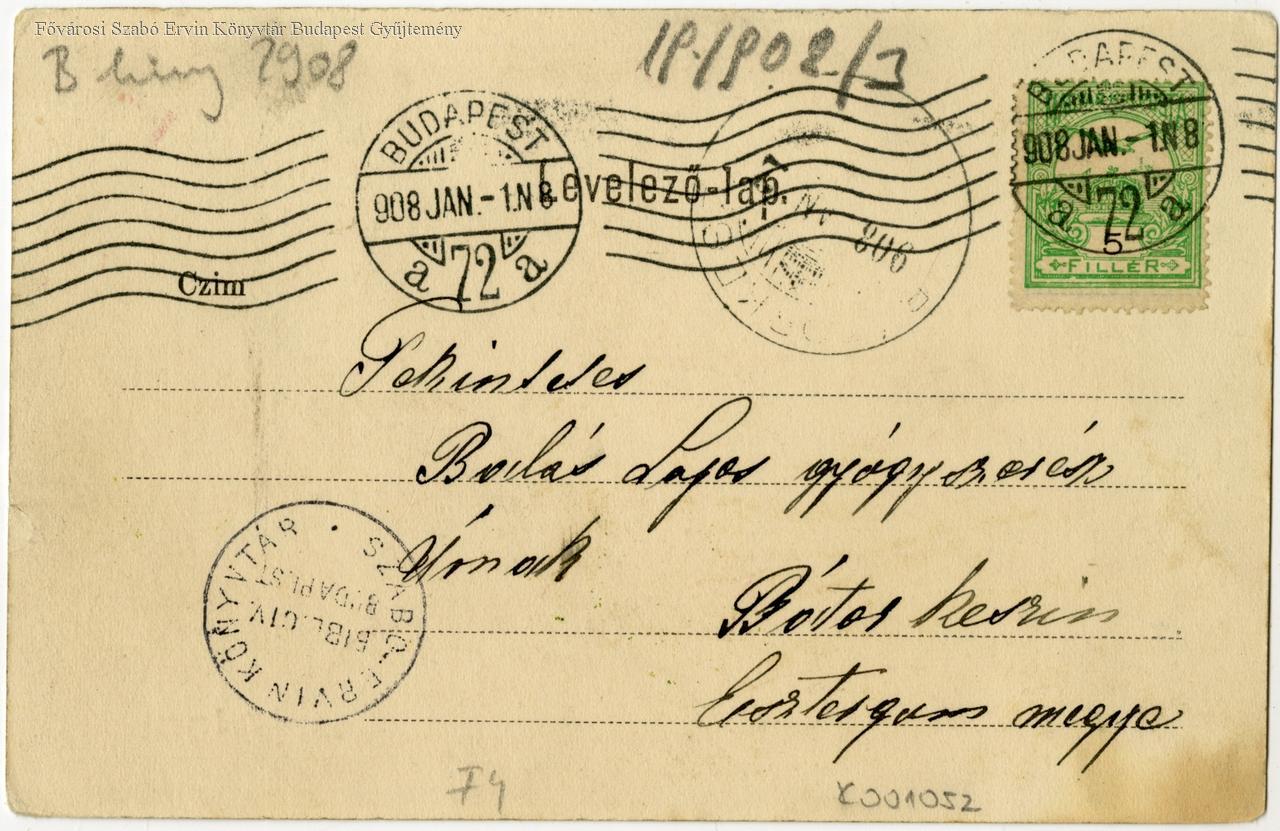 Fővárosi Szabó Ervin Könyvtár Budapest Gyűjtemény
1908
BUDAPEST
908 JAN.-1.N8
a 72 a
Levelező-lap.
BUDAPEST
908 JAN.-1.N8
a 72 a
5
FILLÉR
908
Czim
Tekintetes
Balás Lajos gyógyszerész
Úrnak
Bátorkeszin
Esztergom megye
SZABÓ ERVIN KÖNYVTÁR
BIBL. CIV.
BUDAPEST
X001052